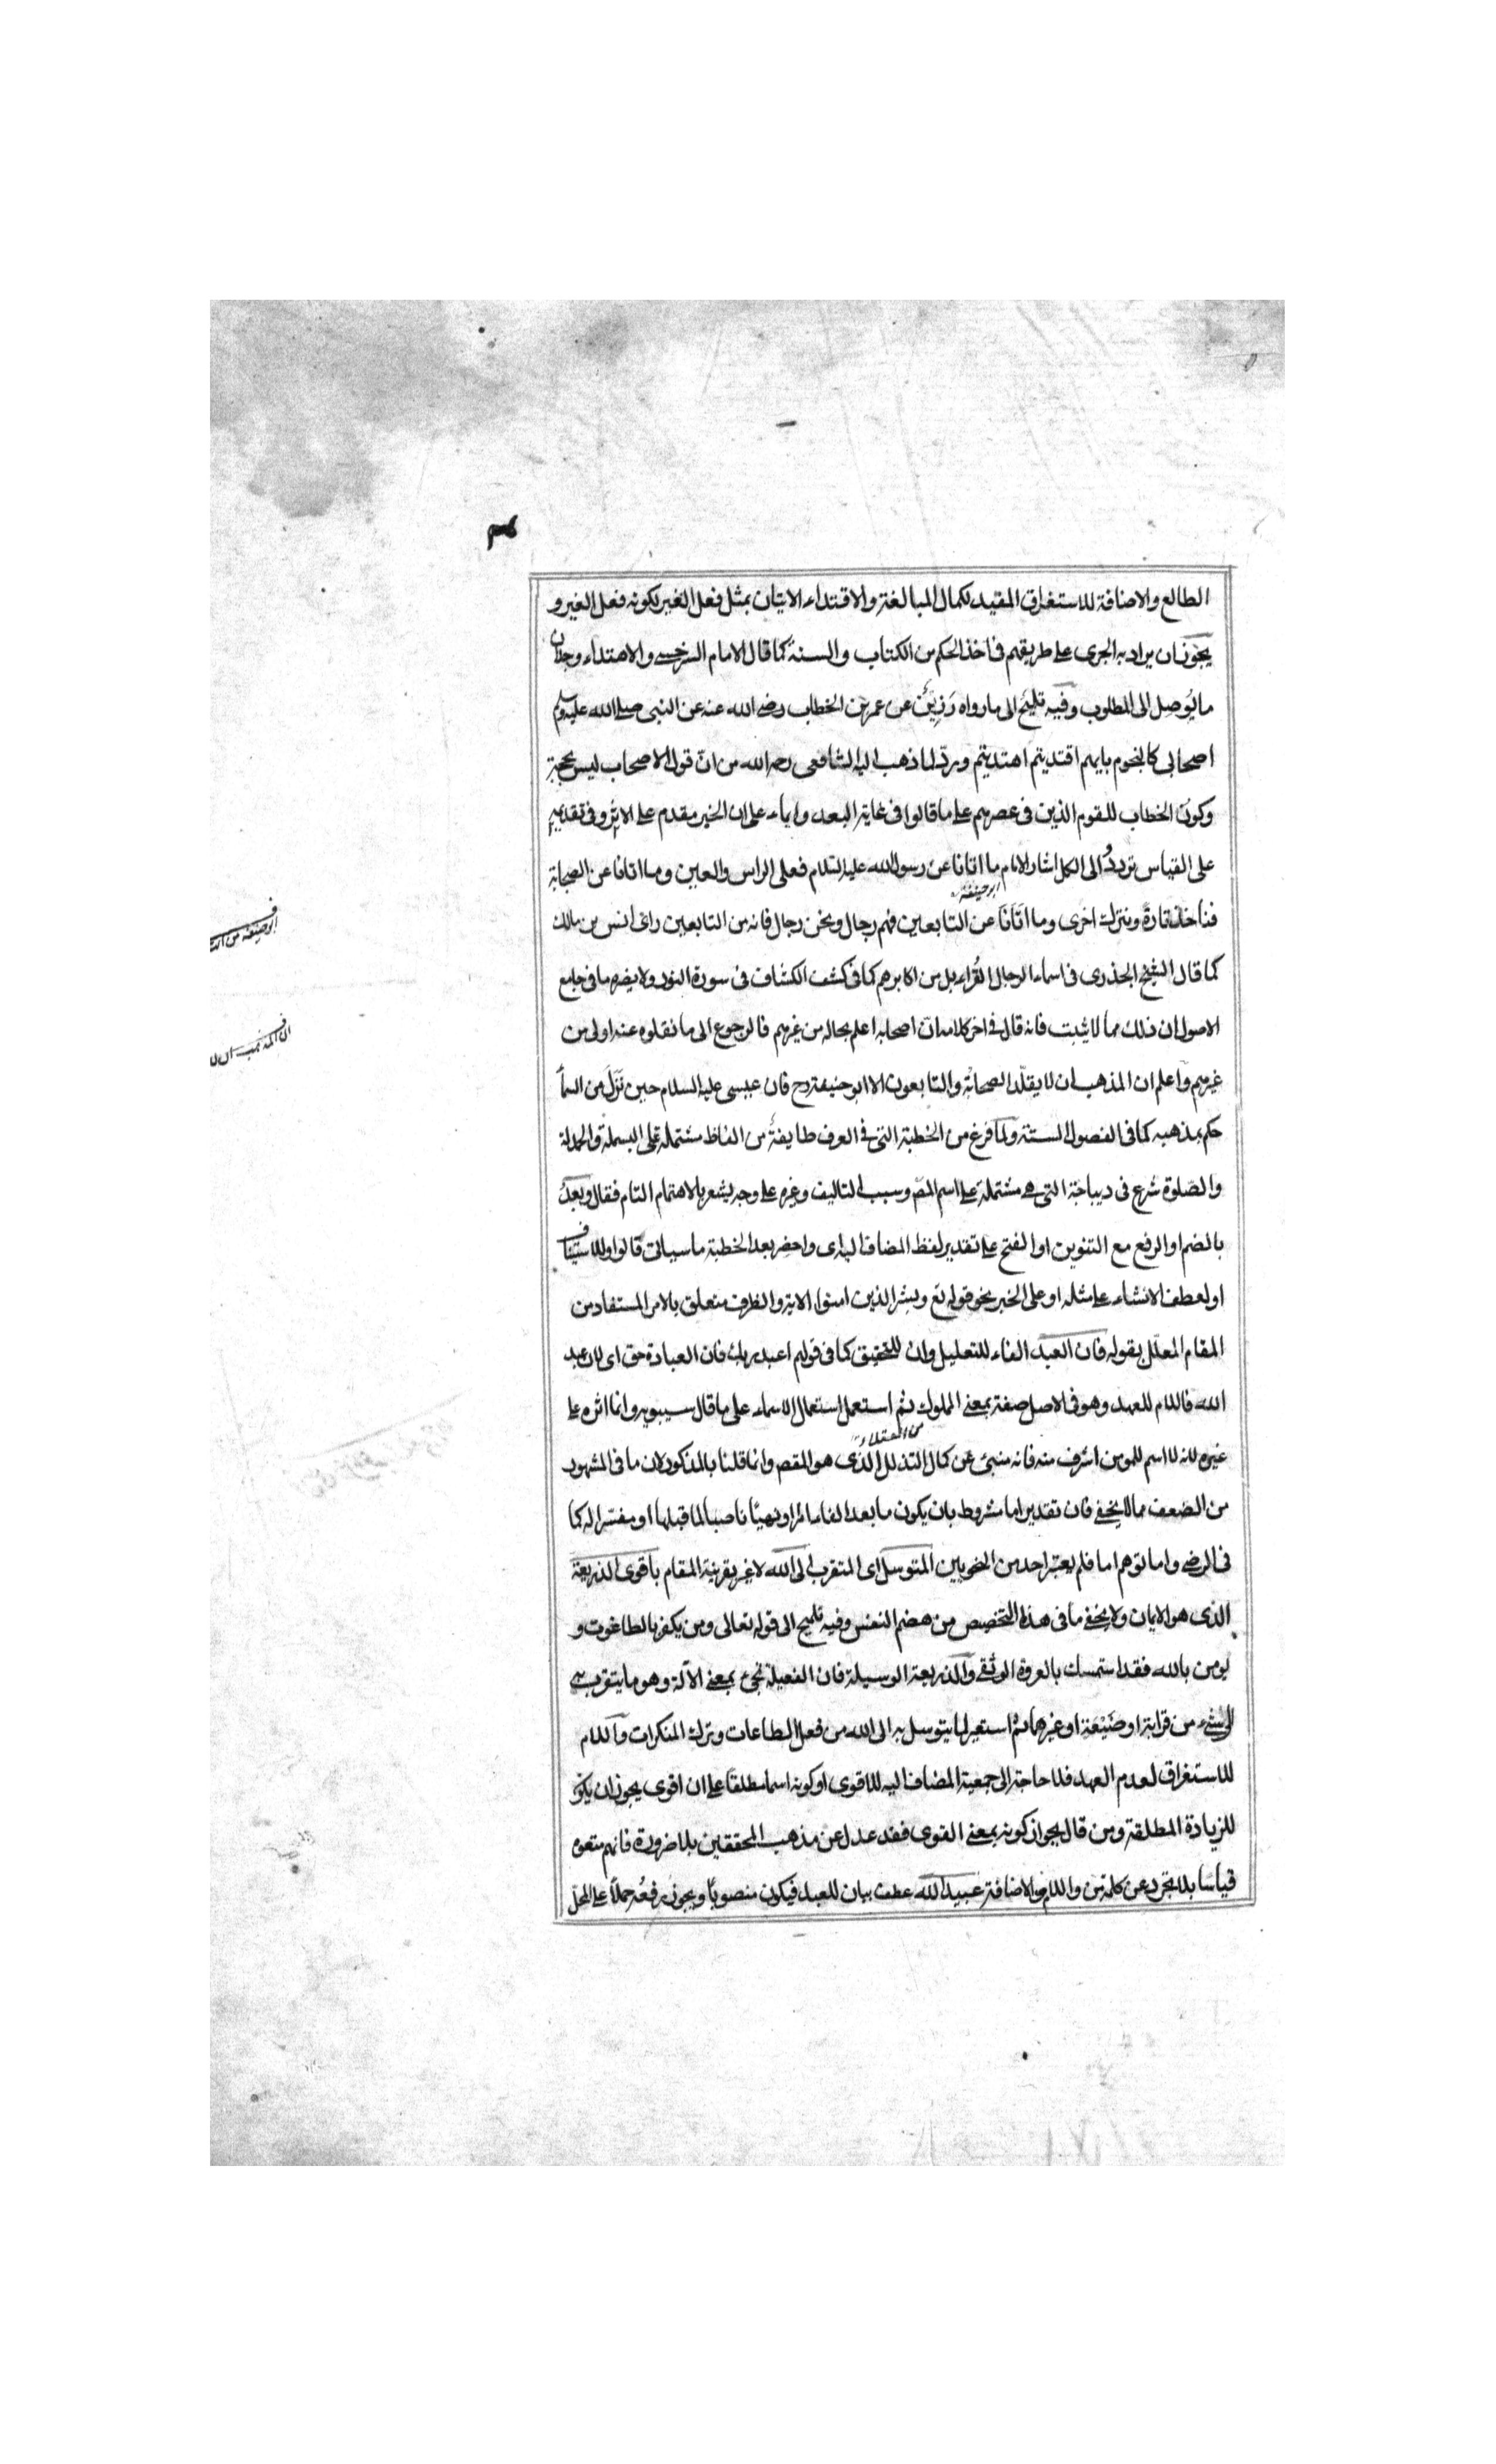 الطالع والاضافة للاستغراق المقيد لكمال المبالغة والاقتداء الاتيان بمثل فعل الغير لكونه فعل الغير و
يجوز ان يراد به الجرى على طريقهم فى اخذ الحكم من الكتاب والسنة كما قال الامام السرخسى والاهتداء وجدان
ما يوصل الى المطلوب وفيه تلميح الى ما رواه رزين عن عمر بن الخطاب رضى الله عنه عن النبى صلى الله عليه وسلم
اصحابى كالنجوم بايهم اقتديتم اهتديتم ورد لما ذهب اليه الشافعى رحمه الله من ان قول الاصحاب ليس بحجة
وكون الخطاب للقوم الذين فى عصرهم على ما قالوا فى غاية البعد وايماء على ان الخبر مقدم على الاثر وفى تقديمهم
على القياس تردد والى الكل اشار الامام ما اتانا عن رسول الله عليه السلام فعلى الراس والعين وما اتانا عن الصحابة
ابو حنيفة
فناخذ تارة ونترك اخرى وما اتانا عن التابعين فهم رجال ونحن رجال فانه من التابعين راى انس بن مالك
كما قال الشيخ الجذرى فى اسماء الرجال القراء بل من اكابرهم كما فى كشف الكشاف فى سورة النور ولا يضره ما فى جامع
الاصول ان ذلك مما لا يثبت فانه قال فى اخر كلامه ان اصحابه اعلم بحاله من غيرهم فالرجوع الى ما نقلوه عنه اولى من
غيرهم واعلم ان المذهب ان لا يقلد الصحابة والتابعون الا ابو حنيفة رح فان عيسى عليه السلام حين نزل من السما
حكم بمذهبه كما فى الفصول الستة ولما فرغ من الخطبة التى فى العرف طايفة من الفاظ مشتملة على البسملة والحمدلة
والصلوة شرع فى ديباجة التى هى مشتملة على اسم المص وسبب التاليف وغيره على وجه يشعر بالاهتمام التام فقال وبعد
بالضم او الرفع مع التنوين او الفتح على تقدير لفظ المضاف اليه اى واحضر بعد الخطبة ما سياتى قالوا وللاستيناف
او لعطف الانشاء على مثله او على الخبر نحو قوله تع وبشر الذين امنوا الاية والظرف متعلق بالامر المستفاد من
المقام المعلل بقوله فان العبد الفاء للتعليل وان للتحقيق كما فى قولهم اعبد ربك فان العبادة حق اى لان عبد
الله فاللام للعهد وهو فى الاصل صفة بمعنى المملوك ثم استعمل استعمال الاسماء على ما قال سيبويه وانما اثره على
من العقلاء
غيره لانه لا اسم للمومن اشرف منه فانه منبئ عن كمال التذلل الذى هو المقص وانما قلنا بالمذكور لان ما فى المشهور
من الضعف مما لا يخفى فان تقدير اما مشروط بان يكون ما بعد الفاء امرا او نهيئا ناصبا لما قبلها او مفسرا له كما
فى الرضى واما توهم اما فلم يعتبر احد من النحويين المتوسل اى المتقرب الى الله لا غير بقرينة المقام باقوى الذريعة
الذى هو الايمان ولا يخفى ما فى هذا التخصيص من هضم النفس وفيه تلميح الى قوله تعالى ومن يكفر بالطاغوت و
يومن بالله فقد استمسك بالعروة الوثقى والذريعة الوسيلة فان الفعيلة تجئ بمعنى الآلة وهو ما يتقرب به
الى شئ من قرابة او ضيعة او غيرهما ثم استعير لما يتوسل به الى الله من فعل الطاعات وترك المنكرات واللام
للاستغراق لعدم العهد فلا حاجة الى جمعية المضاف اليه للاقوى او كونه اسما مطلقا على ان اقوى يجوز ان يكون
للزيادة المطلقة ومن قال بجواز كونه بمعنى القوى فقد عدل عن مذهب المحققين بلا ضرورة فانهم منعوه
قياسا بلا تجرد عن كلمة من واللام والاضافة عبيد الله عطف بيان للعبد فيكون منصوبا ويجوز رفعه حملا على المحل